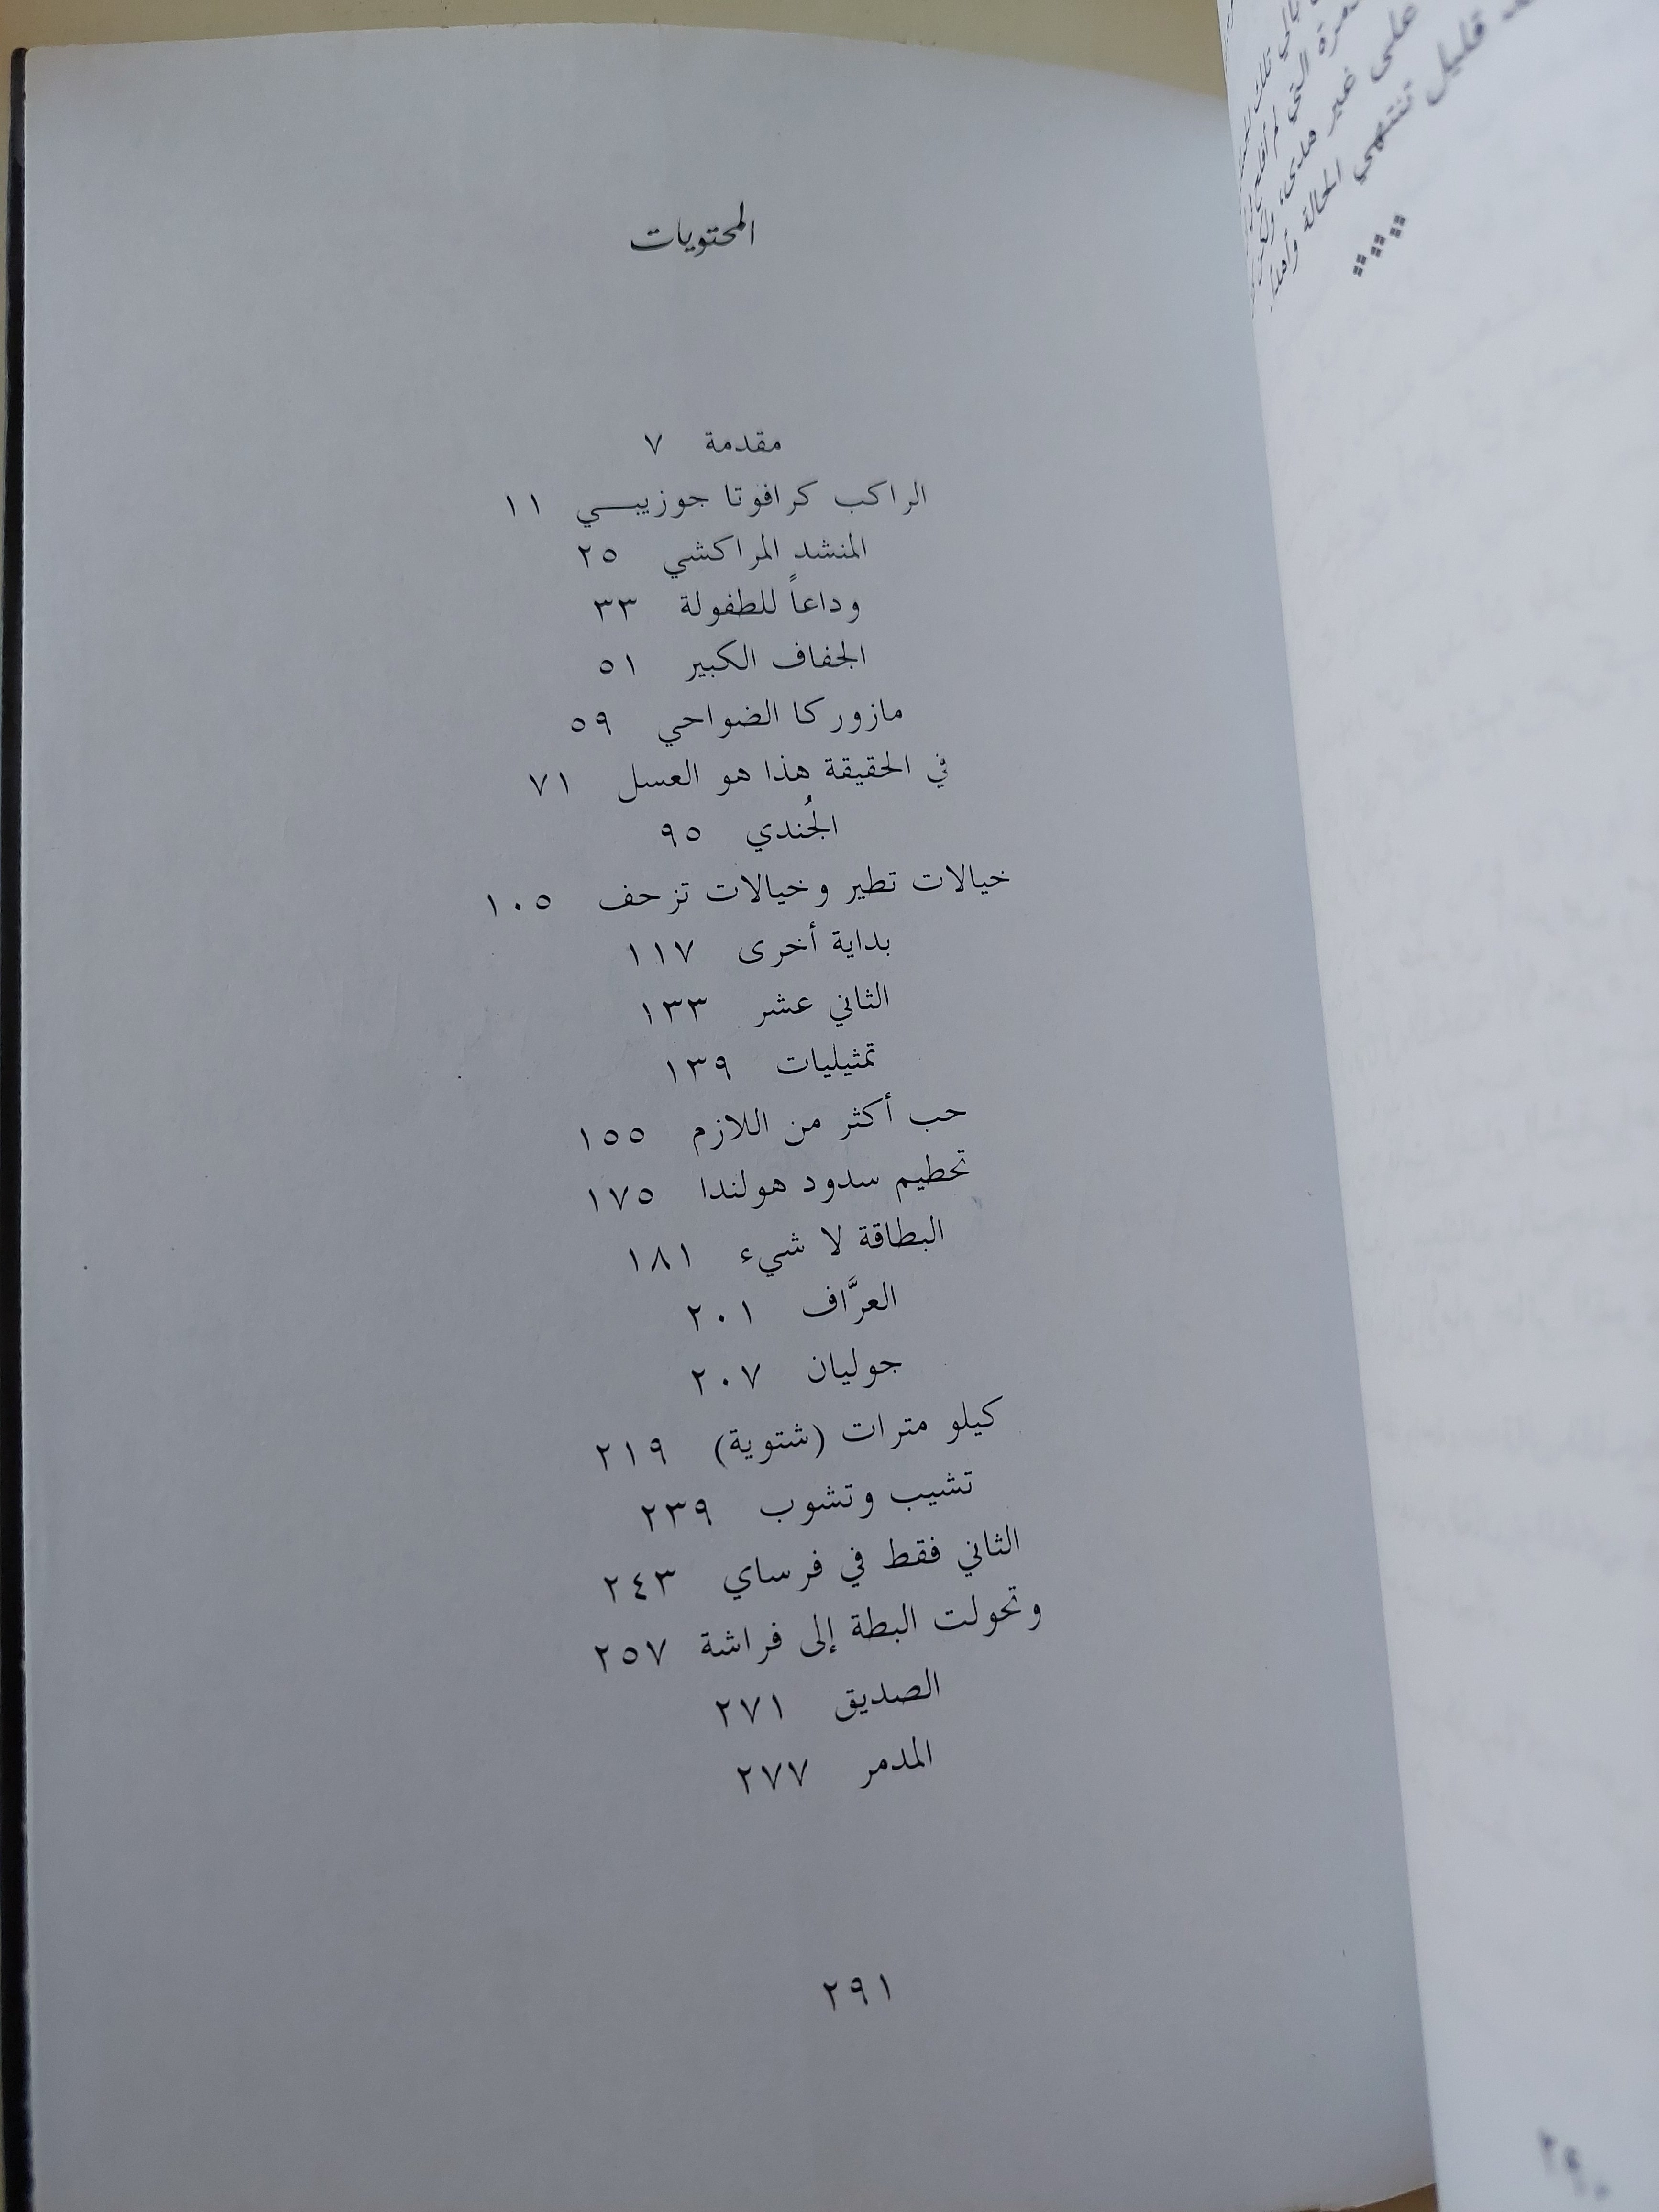 المحتويات
مقدمة ٧
الراكب كرافوتا جوزيبي ١١
المنشد المراكشي ٢٥
وداعاً للطفولة ٣٣
الجفاف الكبير ٥١
مازوركا الضواحي ٥٩
في الحقيقة هذا هو العسل ٧١
الجُندي ٩٥
خيالات تطير وخيالات تزحف ١٠٥
بداية أخرى ١١٧
الثاني عشر ١٣٣
تمثيليات ١٣٩
حب أكثر من اللازم ١٥٥
تحطيم سدود هولندا ١٧٥
البطاقة لا شيء ١٨١
العرَّاف ٢٠١
جوليان ٢٠٧
كيلو مترات (شتوية) ٢١٩
تشيب وتشوب ٢٣٩
الثاني فقط في فرساي ٢٤٣
وتحولت البطة إلى فراشة ٢٥٧
الصديق ٢٧١
المدمر ٢٧٧
٢٩١
التي لم
على غير هدى،
قليل تنتهي الحالة